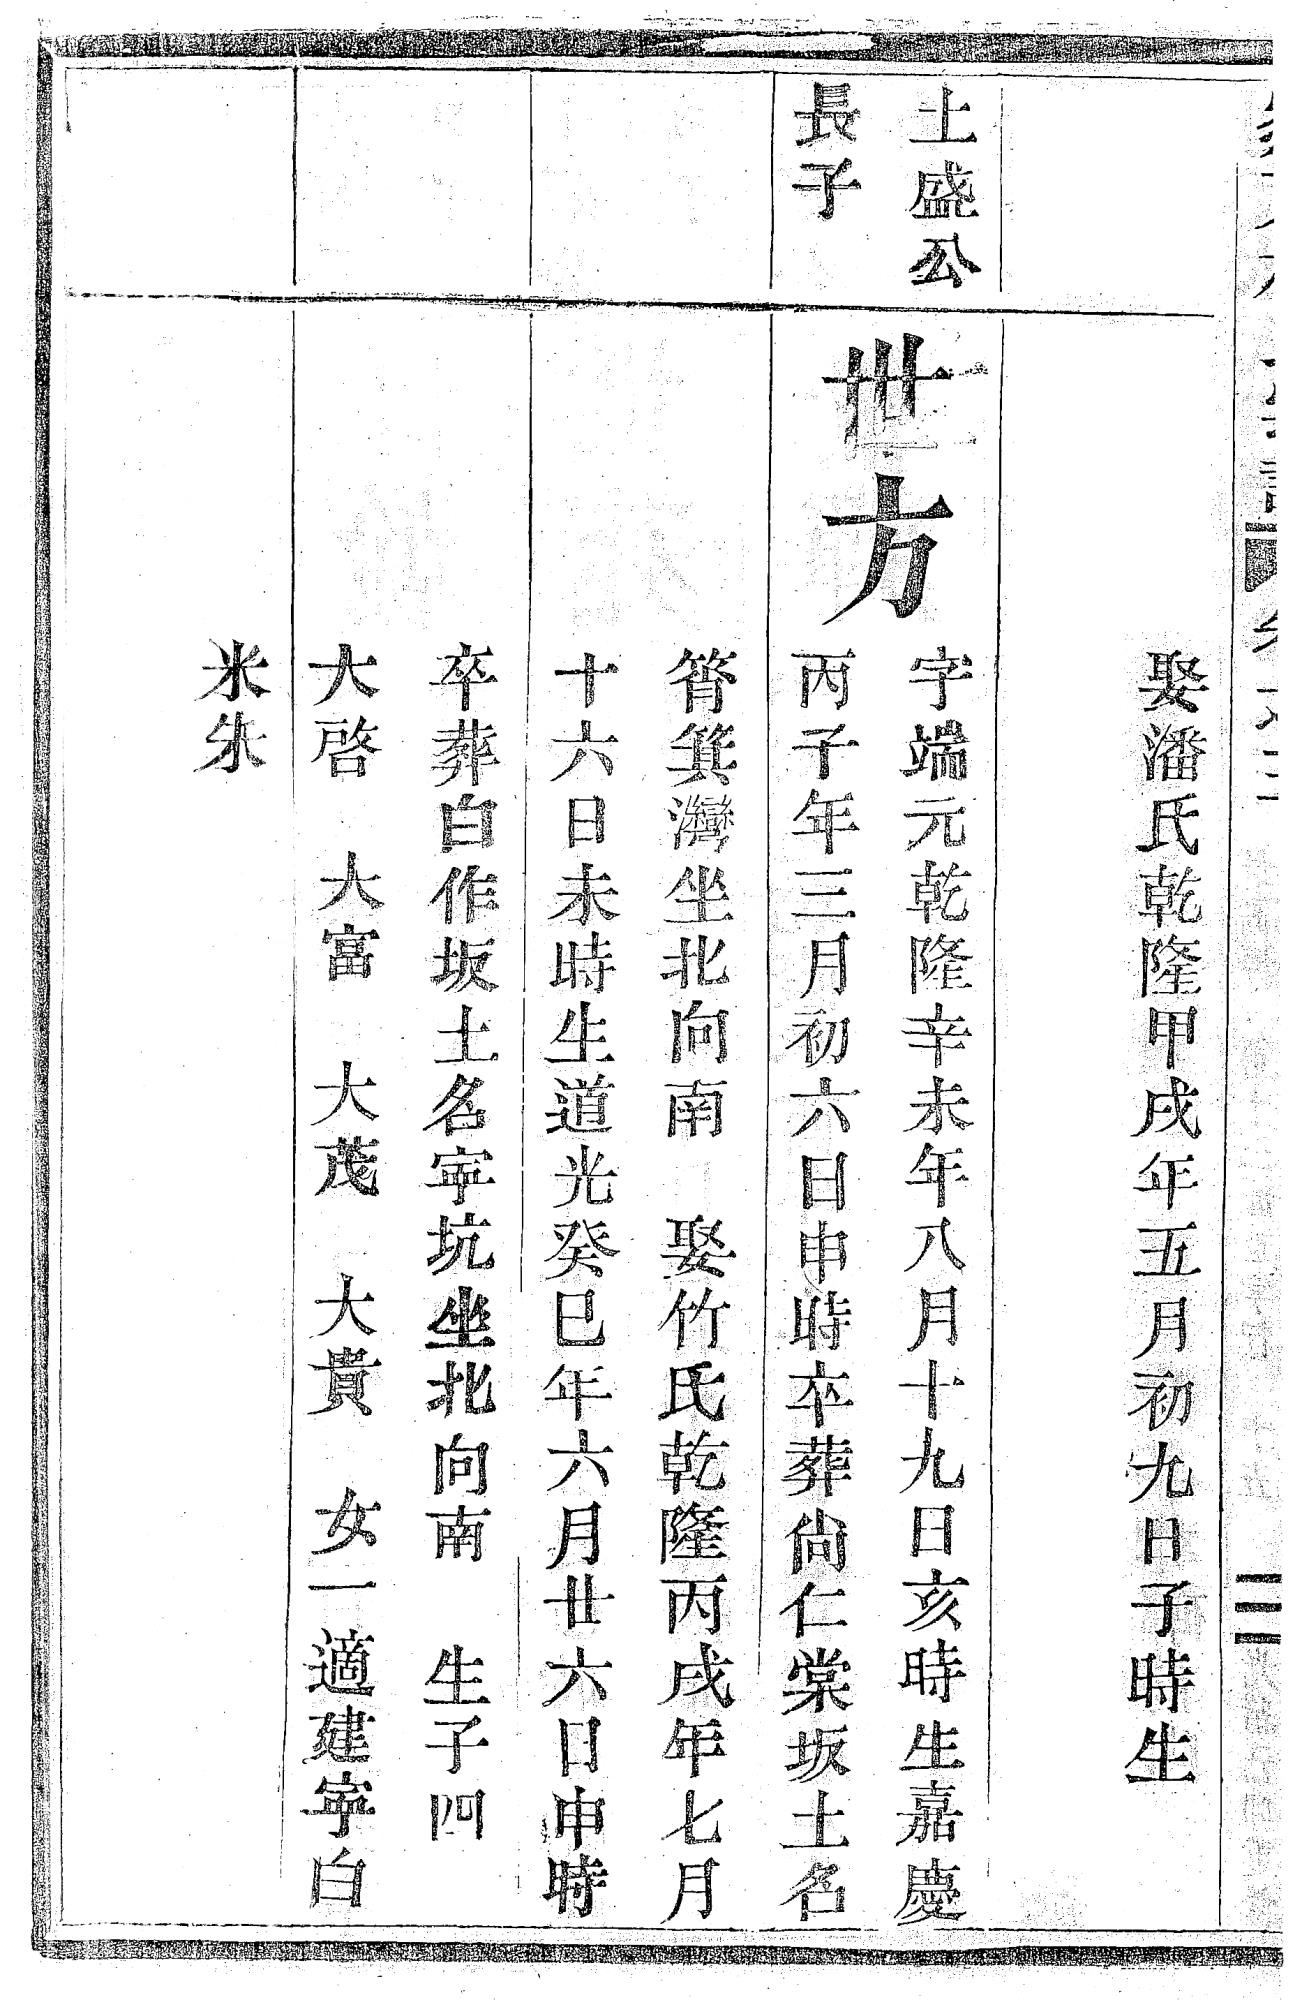 娶潘氏乾隆甲戌年五月初九日子時生
士盛公
長子
世方
字端元乾隆辛未年八月十九日亥時生嘉慶
丙子年三月初六日申時卒葬尙仁棠坂土名
筲箕灣坐北向南 娶竹氏乾隆丙戌年七月
十六日未時生道光癸巳年六月廿六日申時
卒葬自作坂土名寜坑坐北向南 生子四
大啓 大富 大茂 大貴 女一適建寧白
米朱